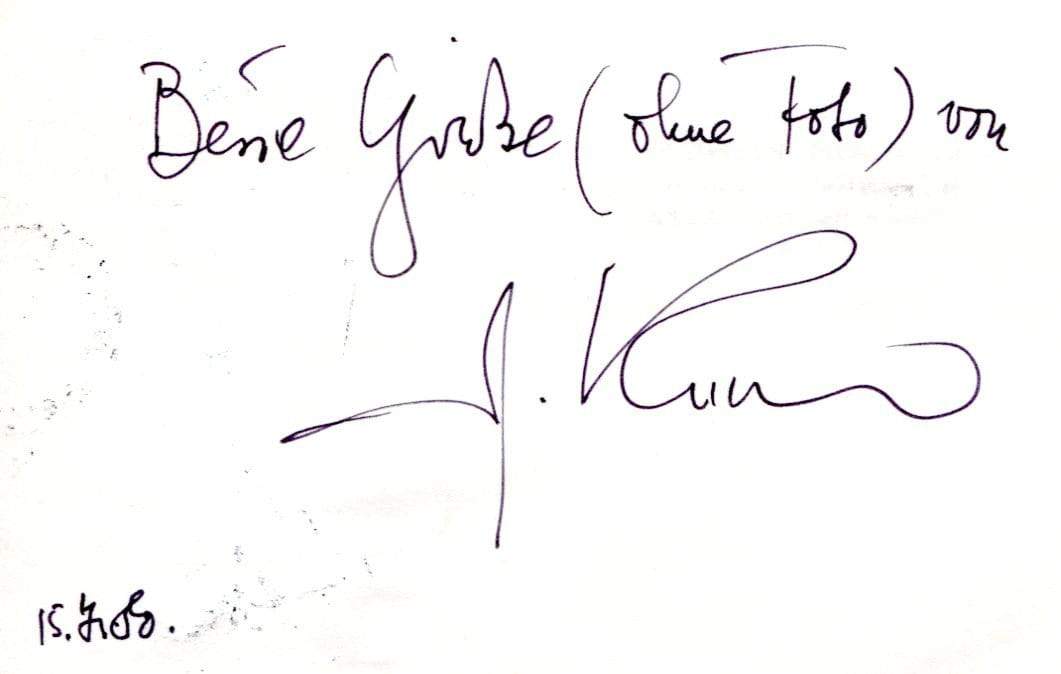 Beste Grüße (ohne Foto) von
J.
15.